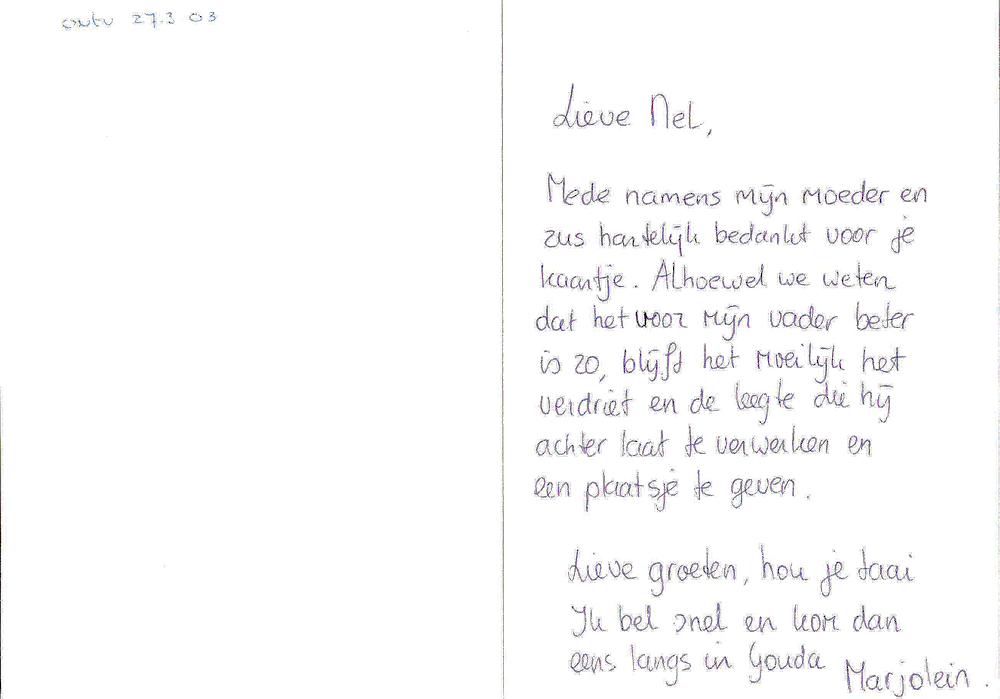 ontv 27.3 03
Lieve Nel,
Mede namens mijn moeder en
zus hartelijk bedankt voor je
kaartje. Alhoewel we weten
dat het voor mijn vader beter
is zo, blijft het moeilijk het
verdriet en de leegte die hij
achter laat te verwerken en
een plaatsje te geven.
Lieve groeten, hou je taai
Ik bel snel en kom dan
eens langs in Gouda
Marjolein.